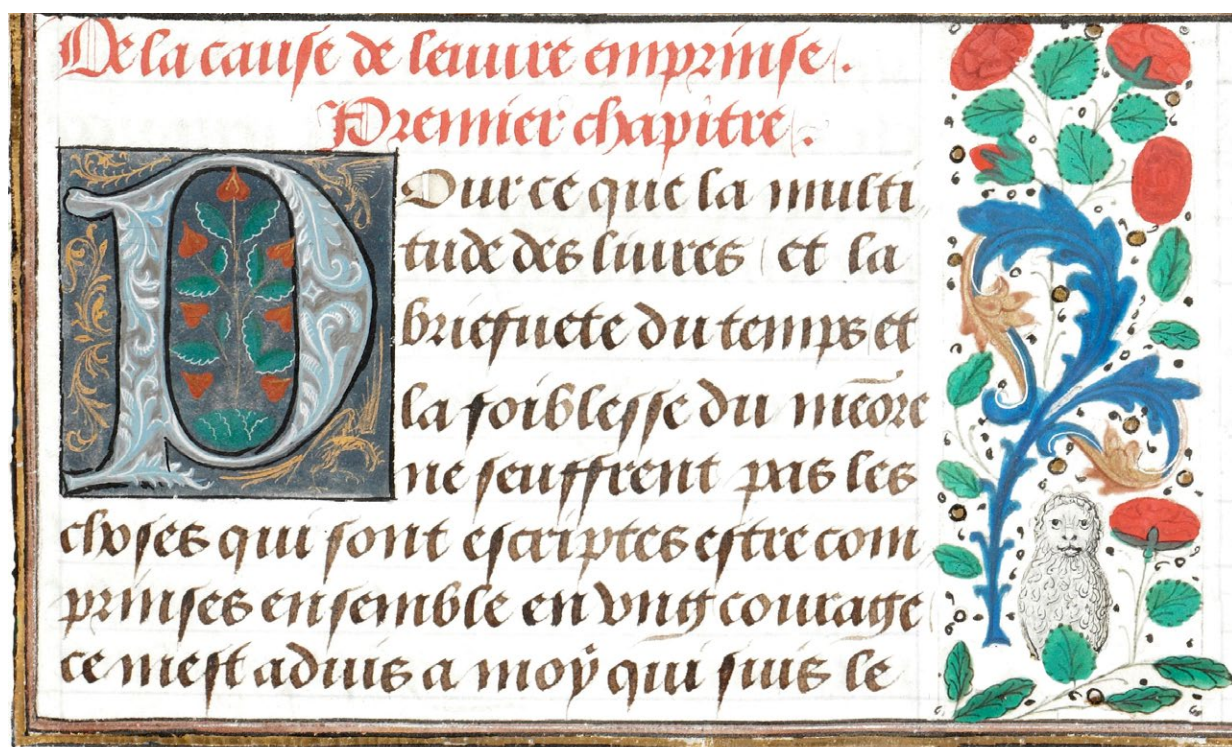 De la cause de leuure emprinse.
Premier chapitre.
Pour ce que la multi
tude des liures et la
briefuete du temps et
la foiblesse du meōre
ne seuffrent pas les
choses qui sont escriptes estre com
prinses ensemble en vng courage
ce mest aduis a moÿ qui suis le